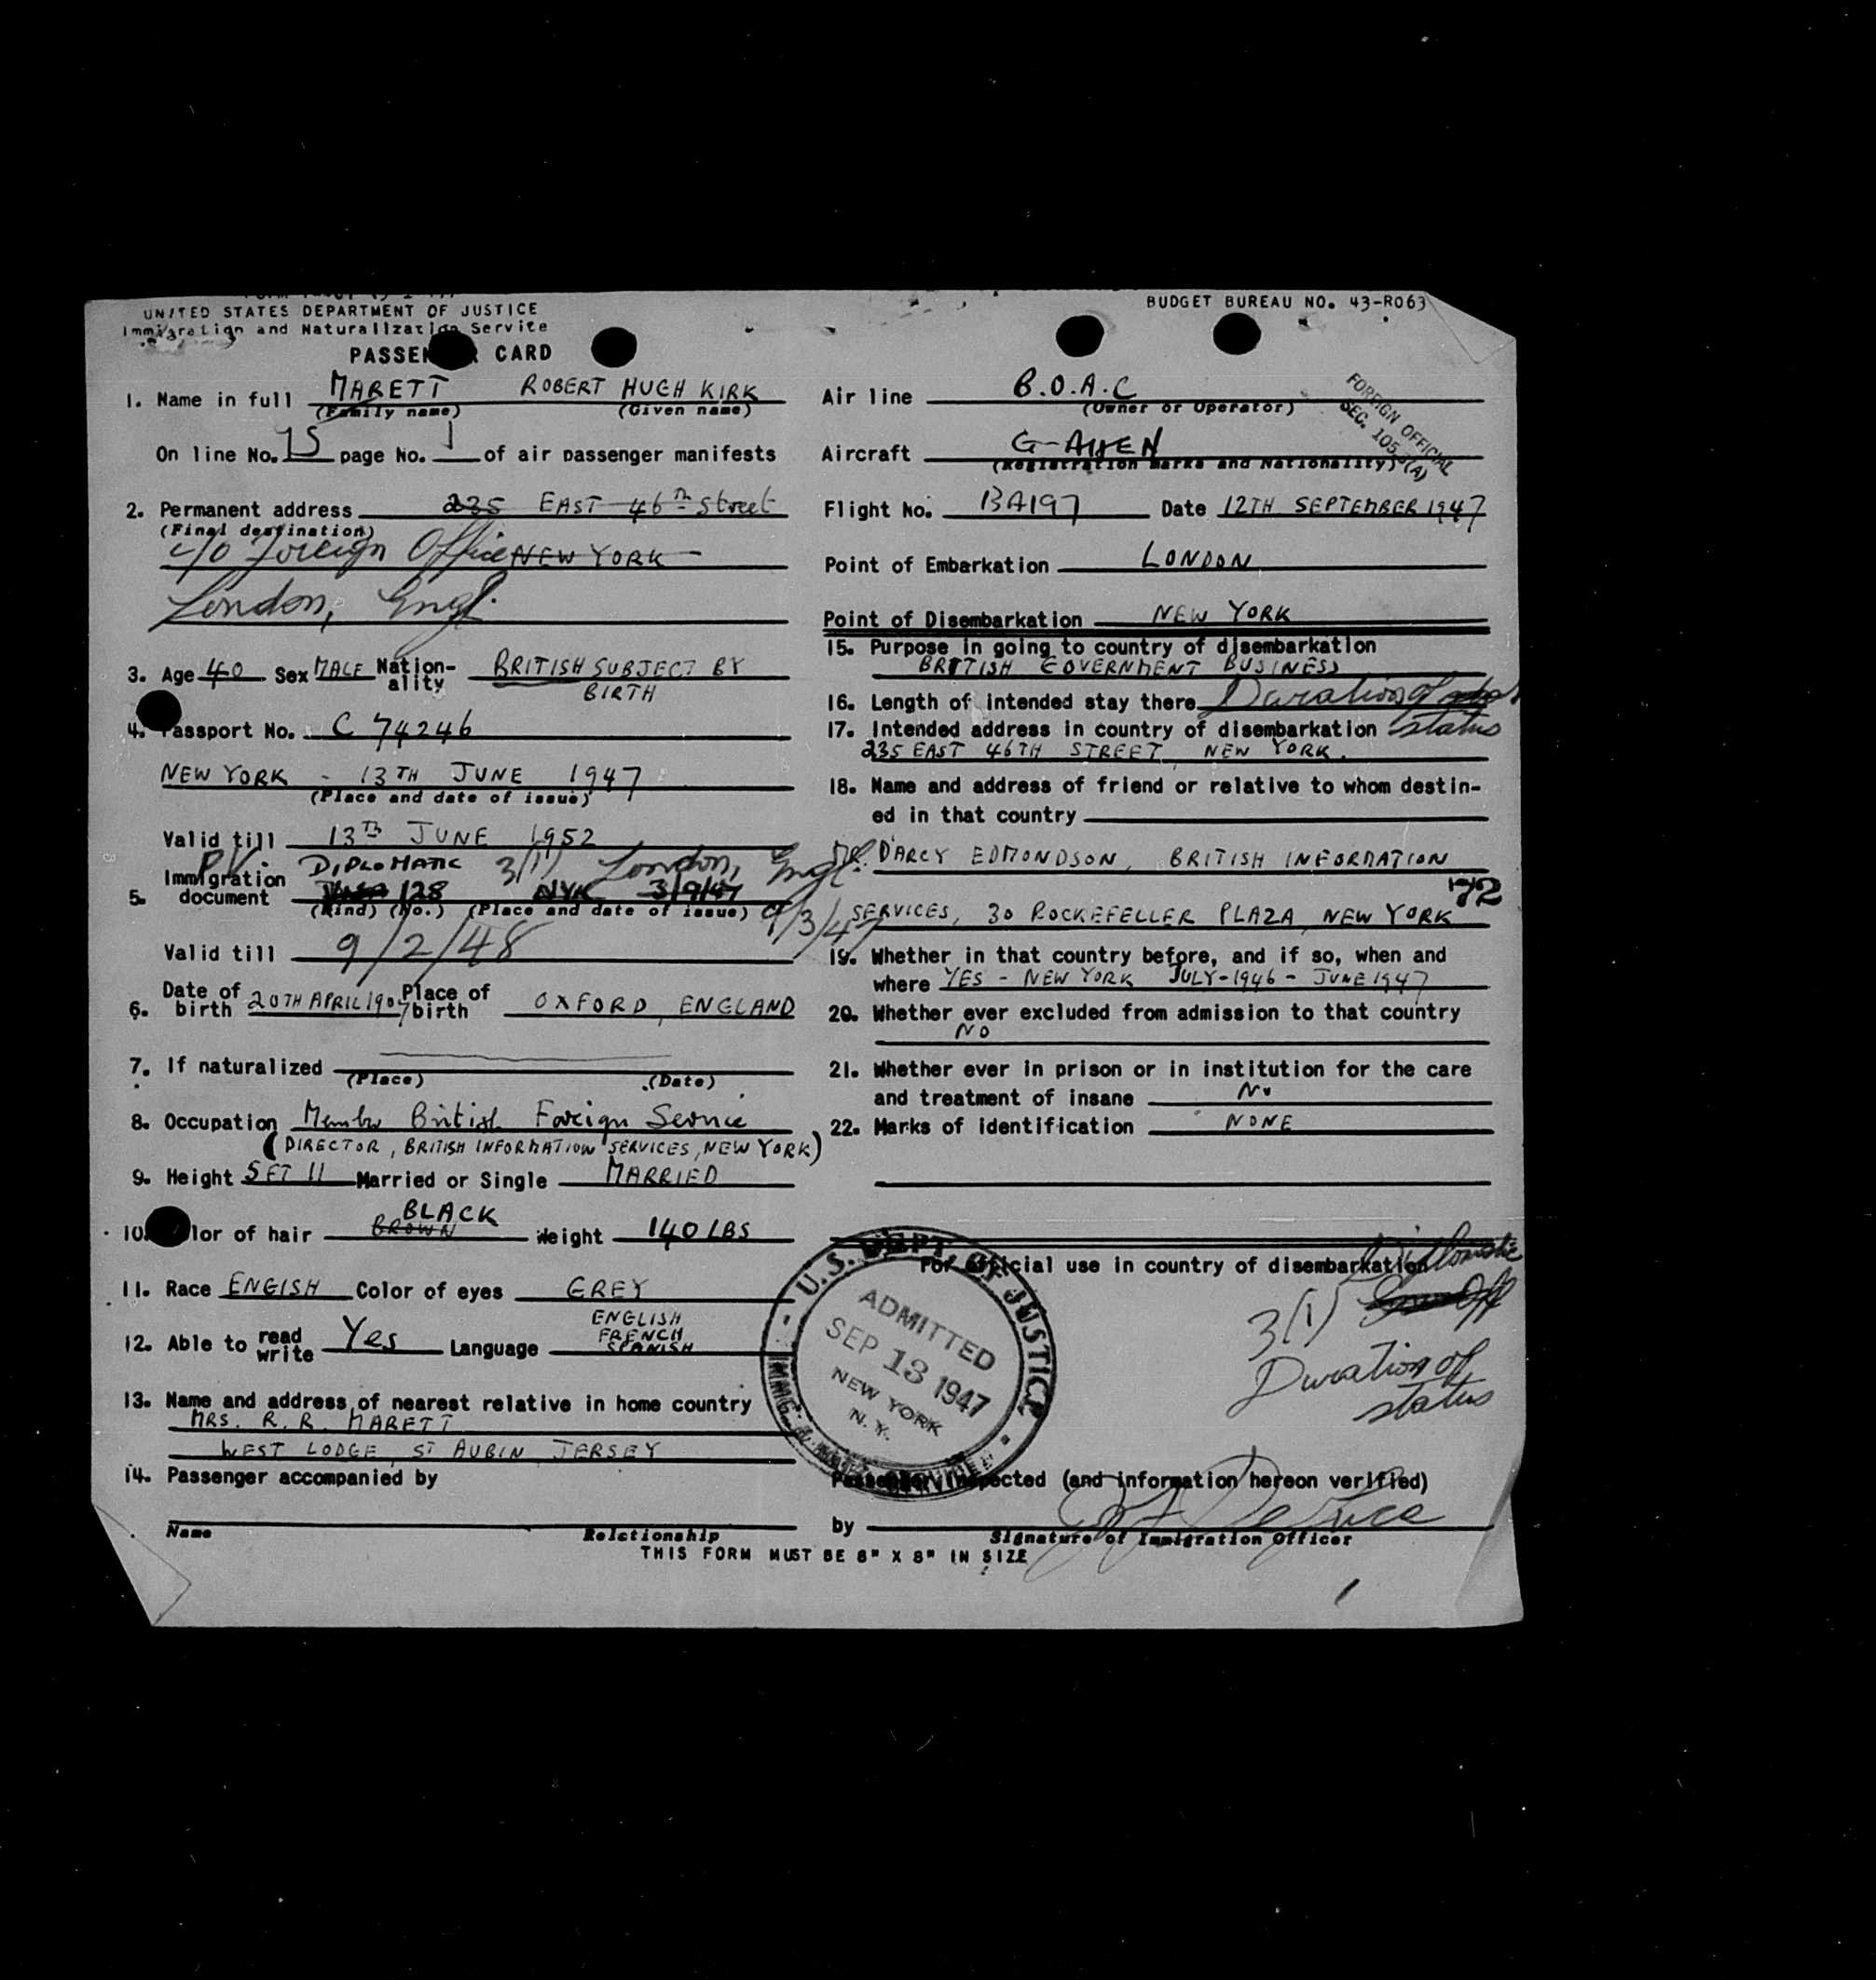 UNITED STATES DEPARTMENT OF JUSTICE
Immigration and Naturalization Service
BUDGET BUREAU NO. 43-R063
PASSENGER CARD
1. Name in full MARETT ROBERT HUGH KIRK
(Family name) (Given name)
On line No. 15 page No. 1 of air passenger manifests
2. Permanent address 235 EAST 46TH Street
(Final destination)
c/o Foreign Office NEW YORK
London, Engl.
3. Age 40 Sex MALE Nationality BRITISH SUBJECT BY
BIRTH
4. Passport No. C 74246
NEW YORK - 13TH JUNE 1947
(Place and date of issue)
Valid till 13TH JUNE 1952
PV DIPLOMATIC 3/(1) London, Engl.
5. Immigration document 128 NYK 3/9/47
(Kind) (No.) (Place and date of issue) 9/3/47
Valid till 9/2/48
6. Date of birth 20TH APRIL 1907 Place of birth OXFORD, ENGLAND
7. If naturalized
(Place) (Date)
8. Occupation Member British Foreign Service
(DIRECTOR, BRITISH INFORMATION SERVICES, NEW YORK)
9. Height 5FT 11 Married or Single MARRIED
BLACK
10. Color of hair BROWN Weight 140 LBS
11. Race ENGISH Color of eyes GREY
12. Able to read write Yes Language ENGLISH
FRENCH
SPANISH
13. Name and address of nearest relative in home country
MRS. R. R. MARETT
WEST LODGE, ST AUBIN, JERSEY
14. Passenger accompanied by
Name Relctionship
Air line B.O.A.C
(Owner or Operator)
FOREIGN OFFICIAL
SEC. 105.3(A)
Aircraft
(Registration Marks and Nationality)
Flight No. BA197 Date 12TH SEPTEMBER 1947
Point of Embarkation LONDON
Point of Disembarkation NEW YORK
15. Purpose in going to country of disembarkation
BRITISH GOVERNMENT BUSINESS
16. Length of intended stay there Duration of
status
17. Intended address in country of disembarkation
235 EAST 46TH STREET, NEW YORK.
18. Name and address of friend or relative to whom destin-
ed in that country
MR. D'ARCY EDMONDSON, BRITISH INFORMATION
72
SERVICES, 30 ROCKEFELLER PLAZA, NEW YORK
19. Whether in that country before, and if so, when and
where YES - NEW YORK JULY-1946 - JUNE 1947
20. Whether ever excluded from admission to that country
NO
21. Whether ever in prison or in institution for the care
and treatment of insane No
22. Marks of identification NONE
For official use in country of disembarkation
Diplomatic
3(1)
Duration of
status
U.S. DEPT. OF JUSTICE
ADMITTED
SEP 13 1947
NEW YORK
N.Y.
IMMG. & NATZ. SERVICE
Passenger inspected (and information hereon verified)
by
Signature of Immigration Officer
THIS FORM MUST BE 8" X 8" IN SIZE